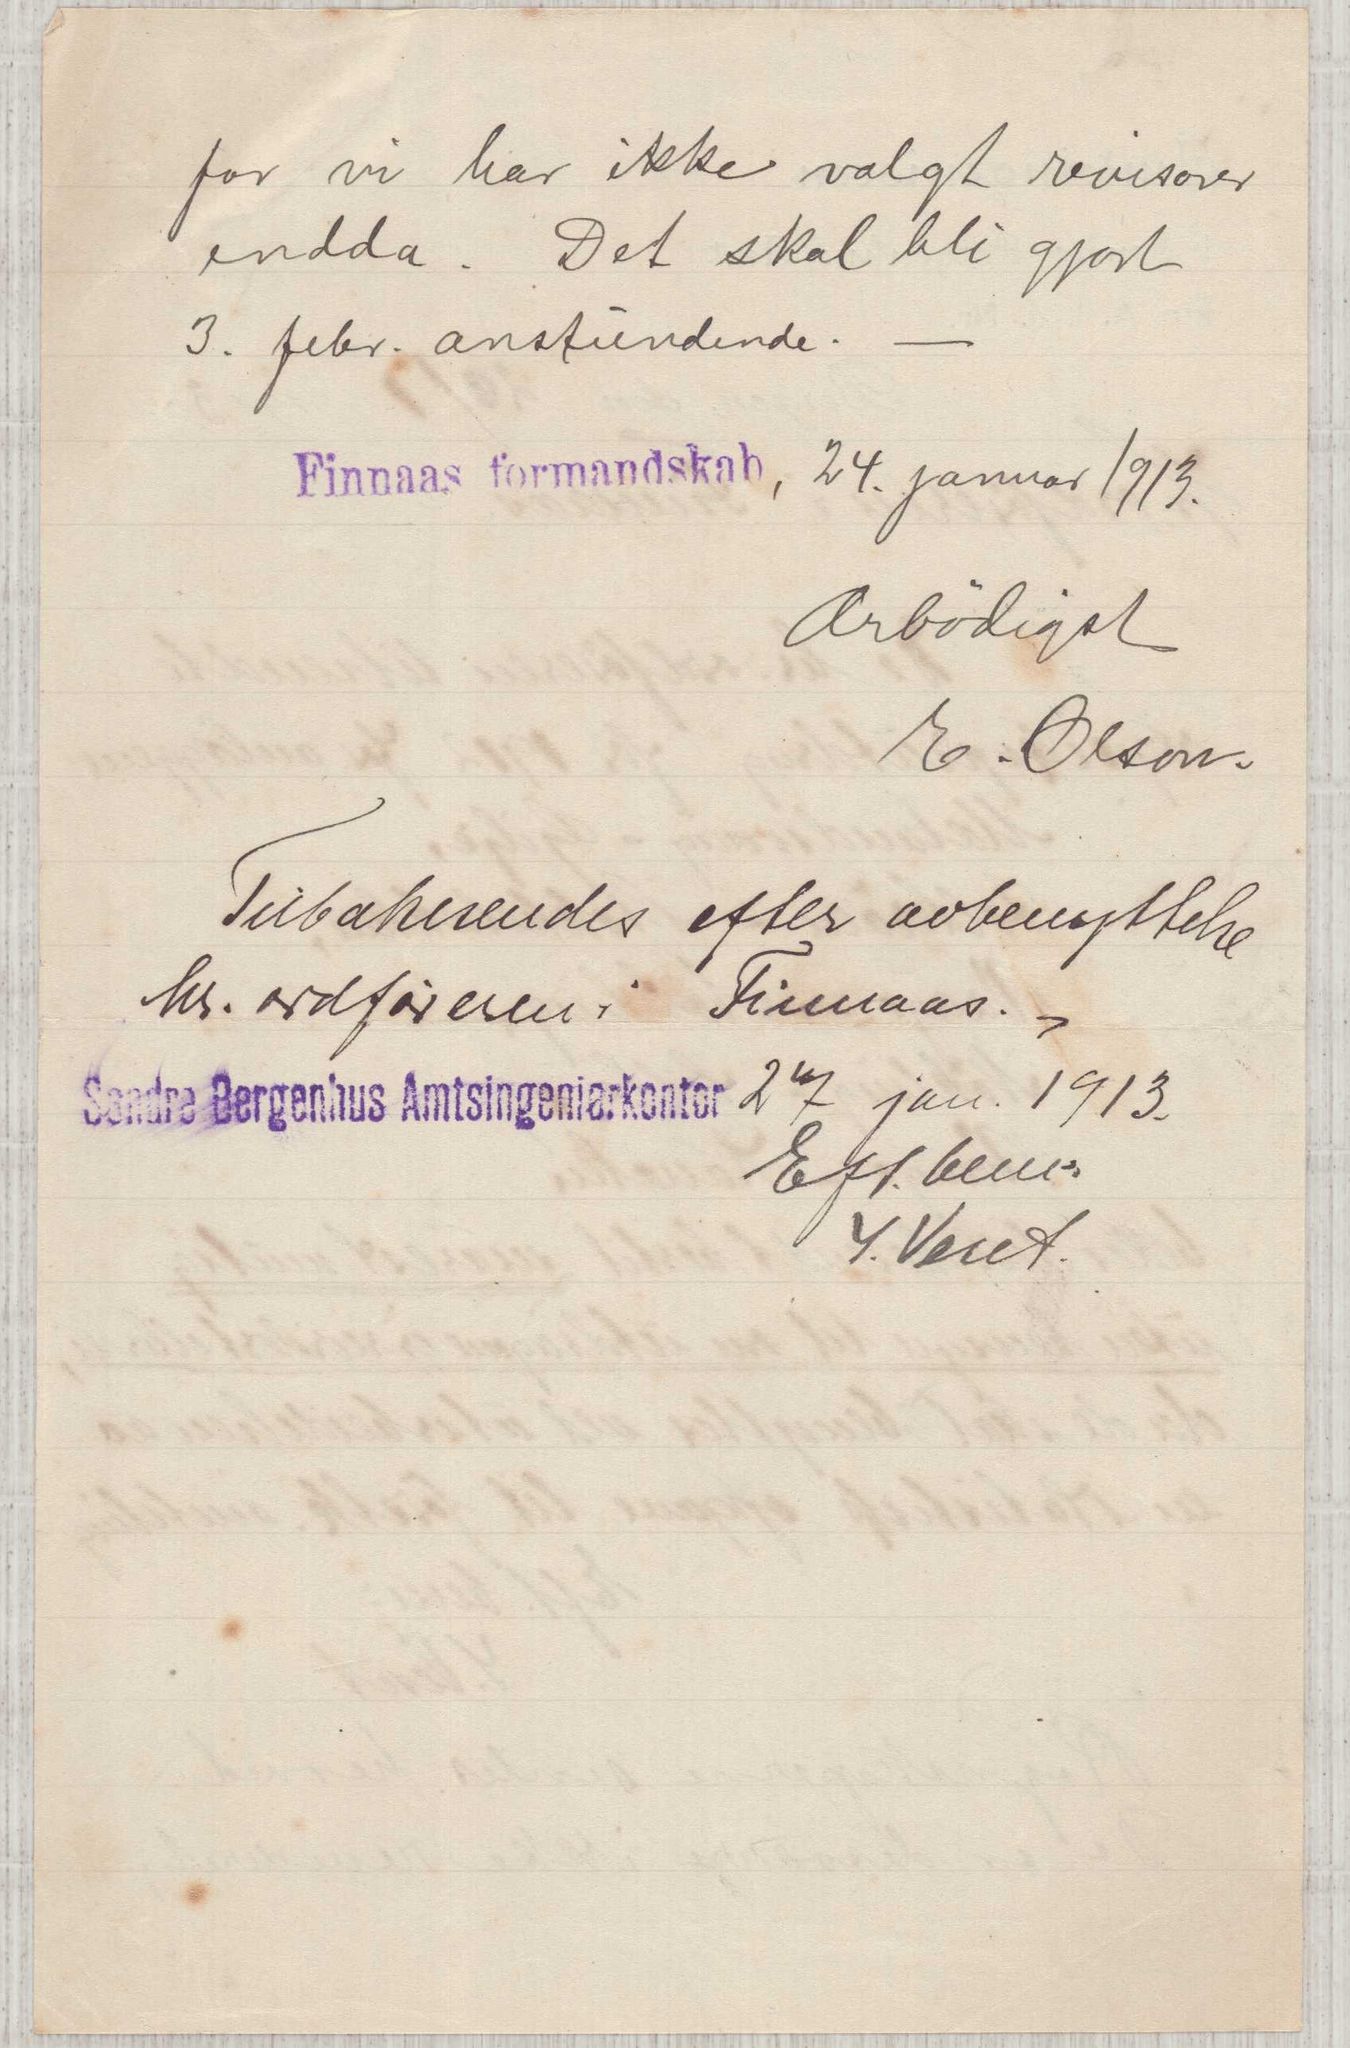 for vi har ikke valgt revisorer
endda. Det skal bli gjort
3. febr. anstundende. —
Finnaas formandskab, 24. januar 1913.
Ærbödigst
E. Olson.
Tilbakesendes efter avbenyttelse
hr. ordföreren i Finnaas.
Søndre Bergenhus Amtsingeniørkontor 27 jan. 1913.
Eft. bem.